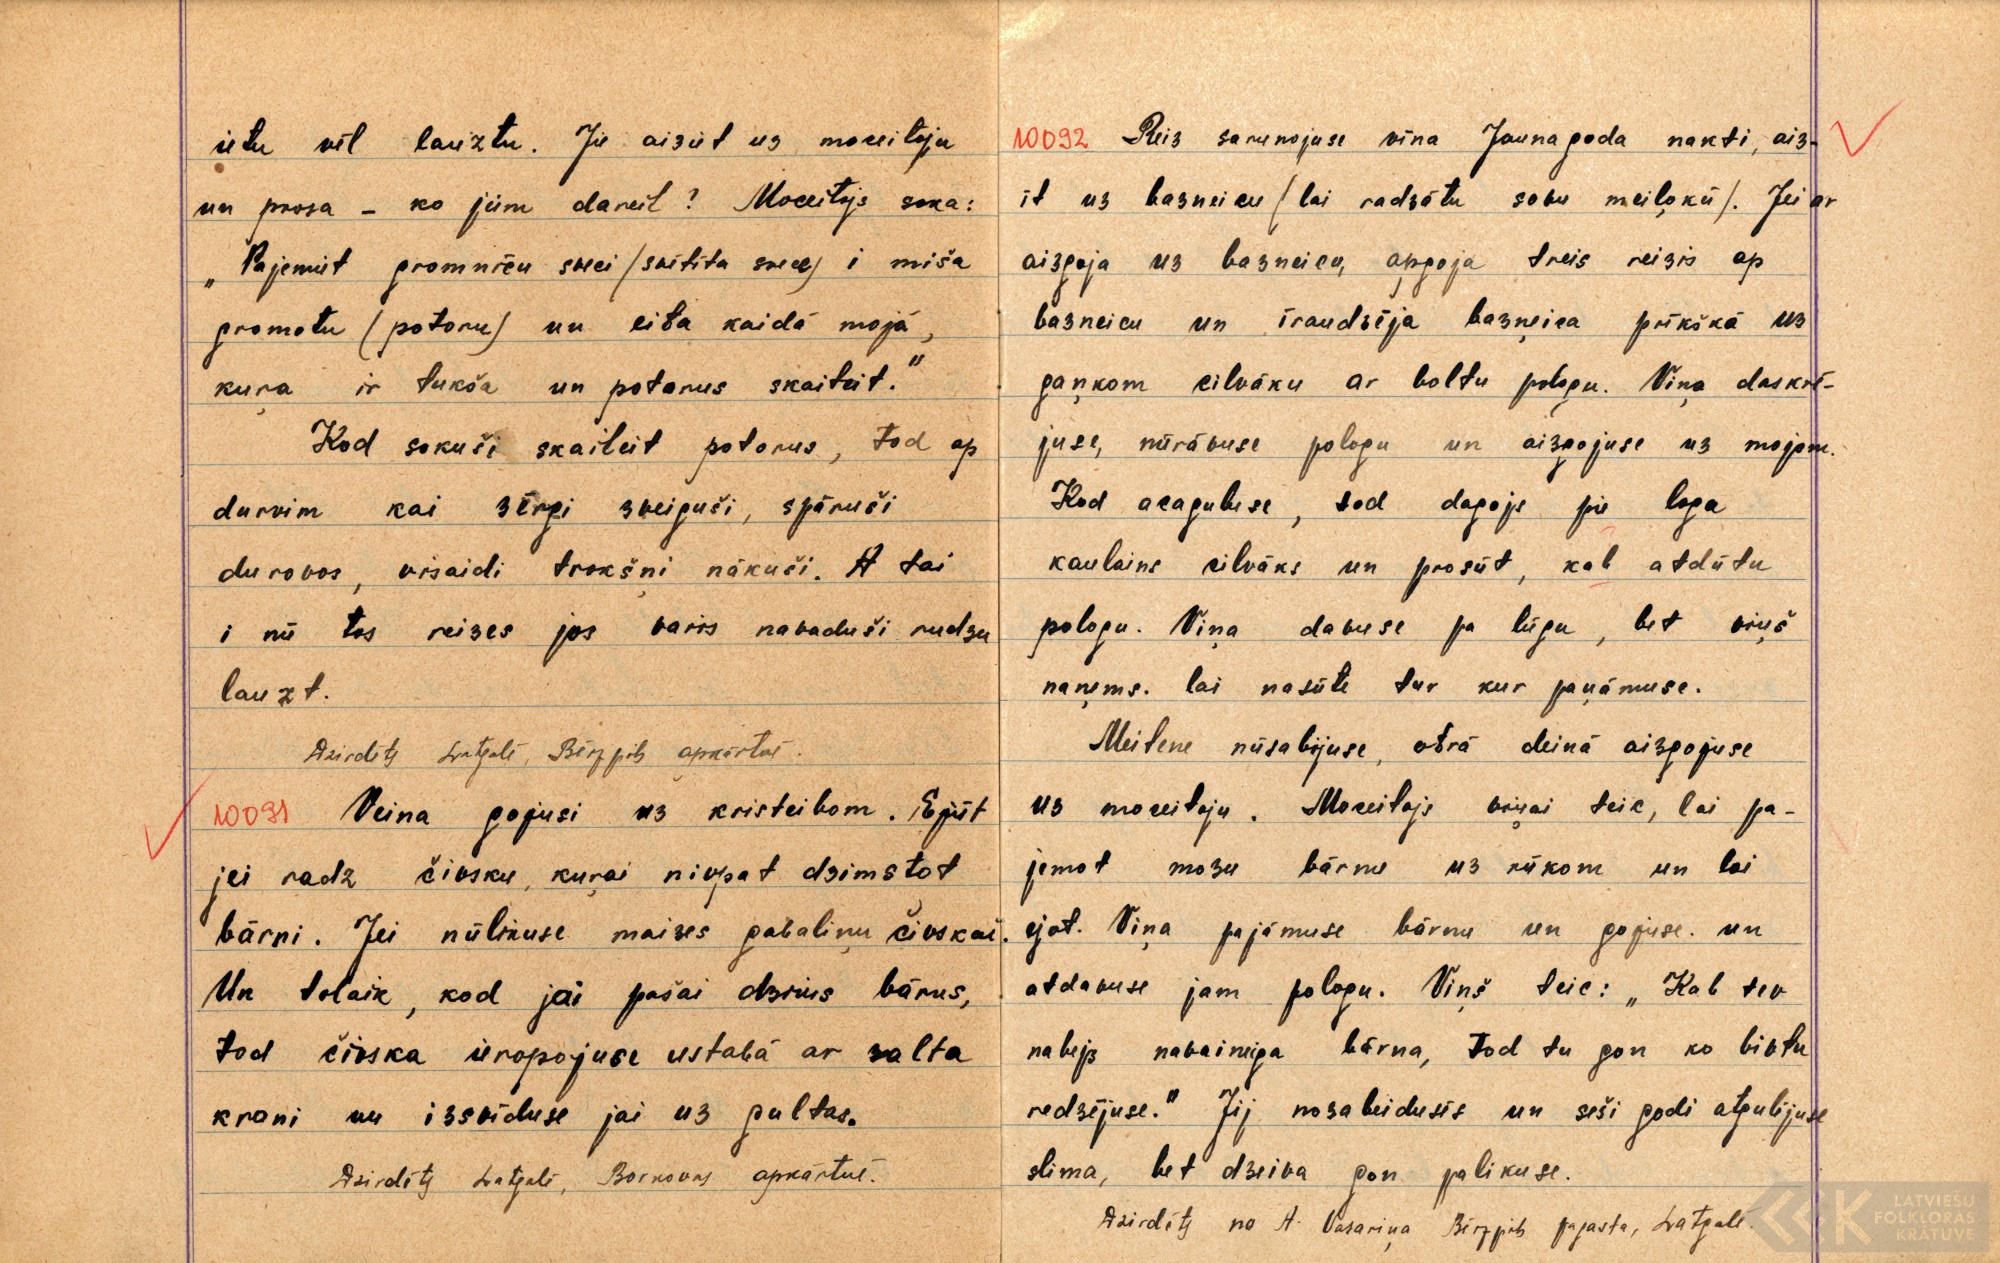 ietu vēl lauztu. Jie aiziet uz moceitoju
un prosa – ko jim dareit? Moceitojs soka:
„Pajemiet gromniču sveci /svētīta svece/ i miša
gromotu (potoru) un eita kaidā mojā,
kuŗa ir tukša un potorus skaiteit."
Kod sokuši skaiteit potorus, tod ap
durvim kai zērgi zveiguši, spāruši
durovos, visaidi trokšņi nākuši. A tai
i nū tos reizes jos vairs navaduši rudzu
lauzt.
Dzirdēts Latgalē, Bērzpils apkārtnē.
10091 Veina gojusi uz kristeibom. Ejūt
jei radz čivsku, kuŗai nivpat dzimstot
bārni. Jei nūlikuse maizes gabaliņu čivskai.
Un tolaik, kod jai pošai dzims bārns,
tod čivska ieropojuse ustabā ar zalta
krani un izsvīduse jai uz gultas.
Dzirdēts Latgalē, Borkovas apkārtnē.
10092 Reiz sarunojuse vīna Jaunagoda nakti, aiz-
it uz bazneicu /lai radzātu sovu meiļokū/. Jei ar
aizgoja uz bazneicu, apgoja treis reizis ap
bazneicu un īraudzēja bazņeica prīkškā uz
gaņkom cilvāku ar boltu pologu. Viņa daskrē-
juse, nūrāvuse pologu un aizgojuse uz mojom.
Kod acaguluse, tod dagojs pie loga
kaulains cilvāks un prosūt, kab atdūtu
pologu. Viņa davuse pa lūgu, bet viņš
naņems. lai nasūte tur kur paņāmuse.
Meitene nūsabijuse, otrā deinā aizgojuse
uz moceitoju. Moceitojs viņai teic, lai pa-
jemot mozu bārnu uz rūkom un lai
ejot. Viņa pajāmuse bārnu un gojuse. un
atdavuse jam pologu. Viņš teic: „Kab tev
nabejs navaineiga bārna, tod tu gon ko bivtu
redzējuse." Jij nozabeidusēs un seši godi atgulējuse
slima, bet dzeiva gon palikuse.
Dzirdēts no A. Vasariņa Bērzpils pagasta, Latgalē.
LATVIEŠU
FOLKLORAS
KRĀTUVE